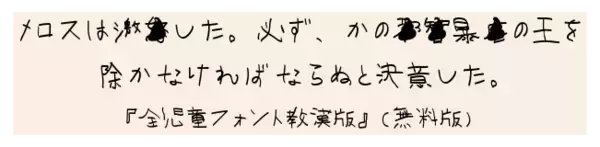 メロスは激した。必ず、かの暴の王を
除かなければならぬと決意した。
『全児童フォント教漢版』(無料版)